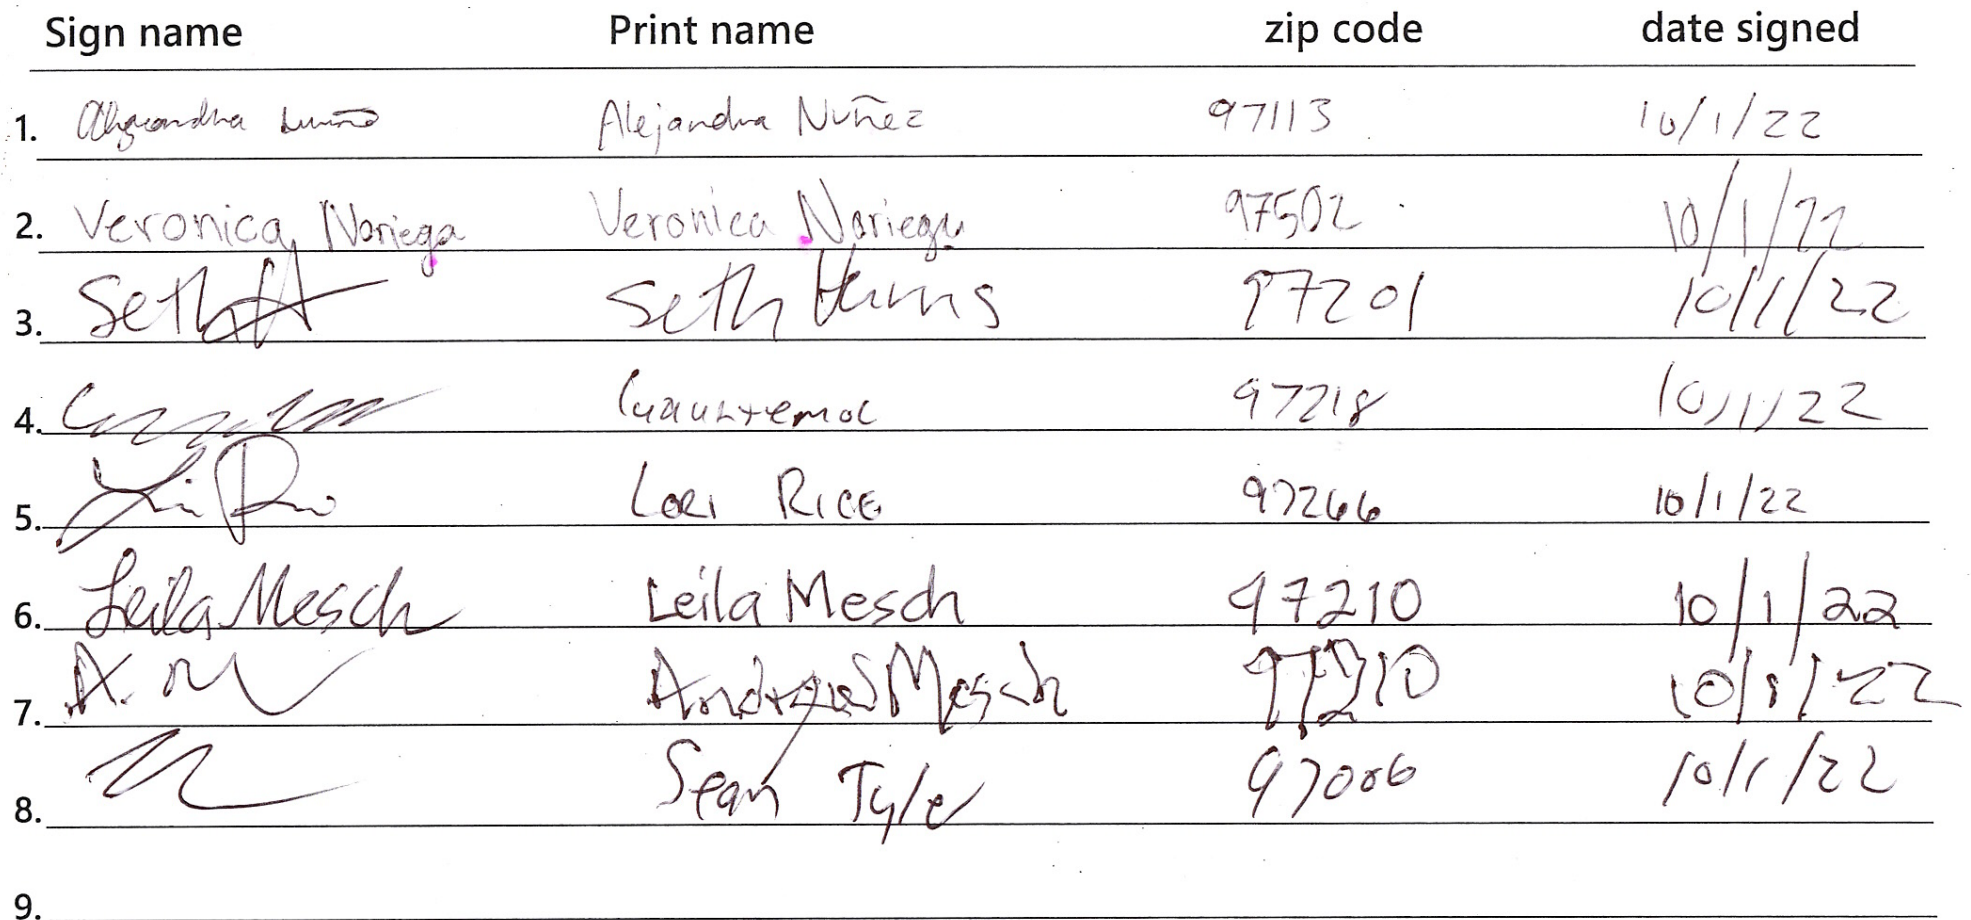 Sign name Print name zip code date signed
1. Alejandra Nuñez 97113 10/1/22
2. Veronica Noriega Veronica Noriega 97502 10/1/22
3. Seth Seth 97201 10/1/22
4. 97218 10/1/22
5. Lori Rice LORI RICE 97266 10/1/22
6. Leila Mesch Leila Mesch 97210 10/1/22
7. A. M Andrew Mesch 97210 10/1/22
8. Sean Tyler 97006 10/1/22
9.